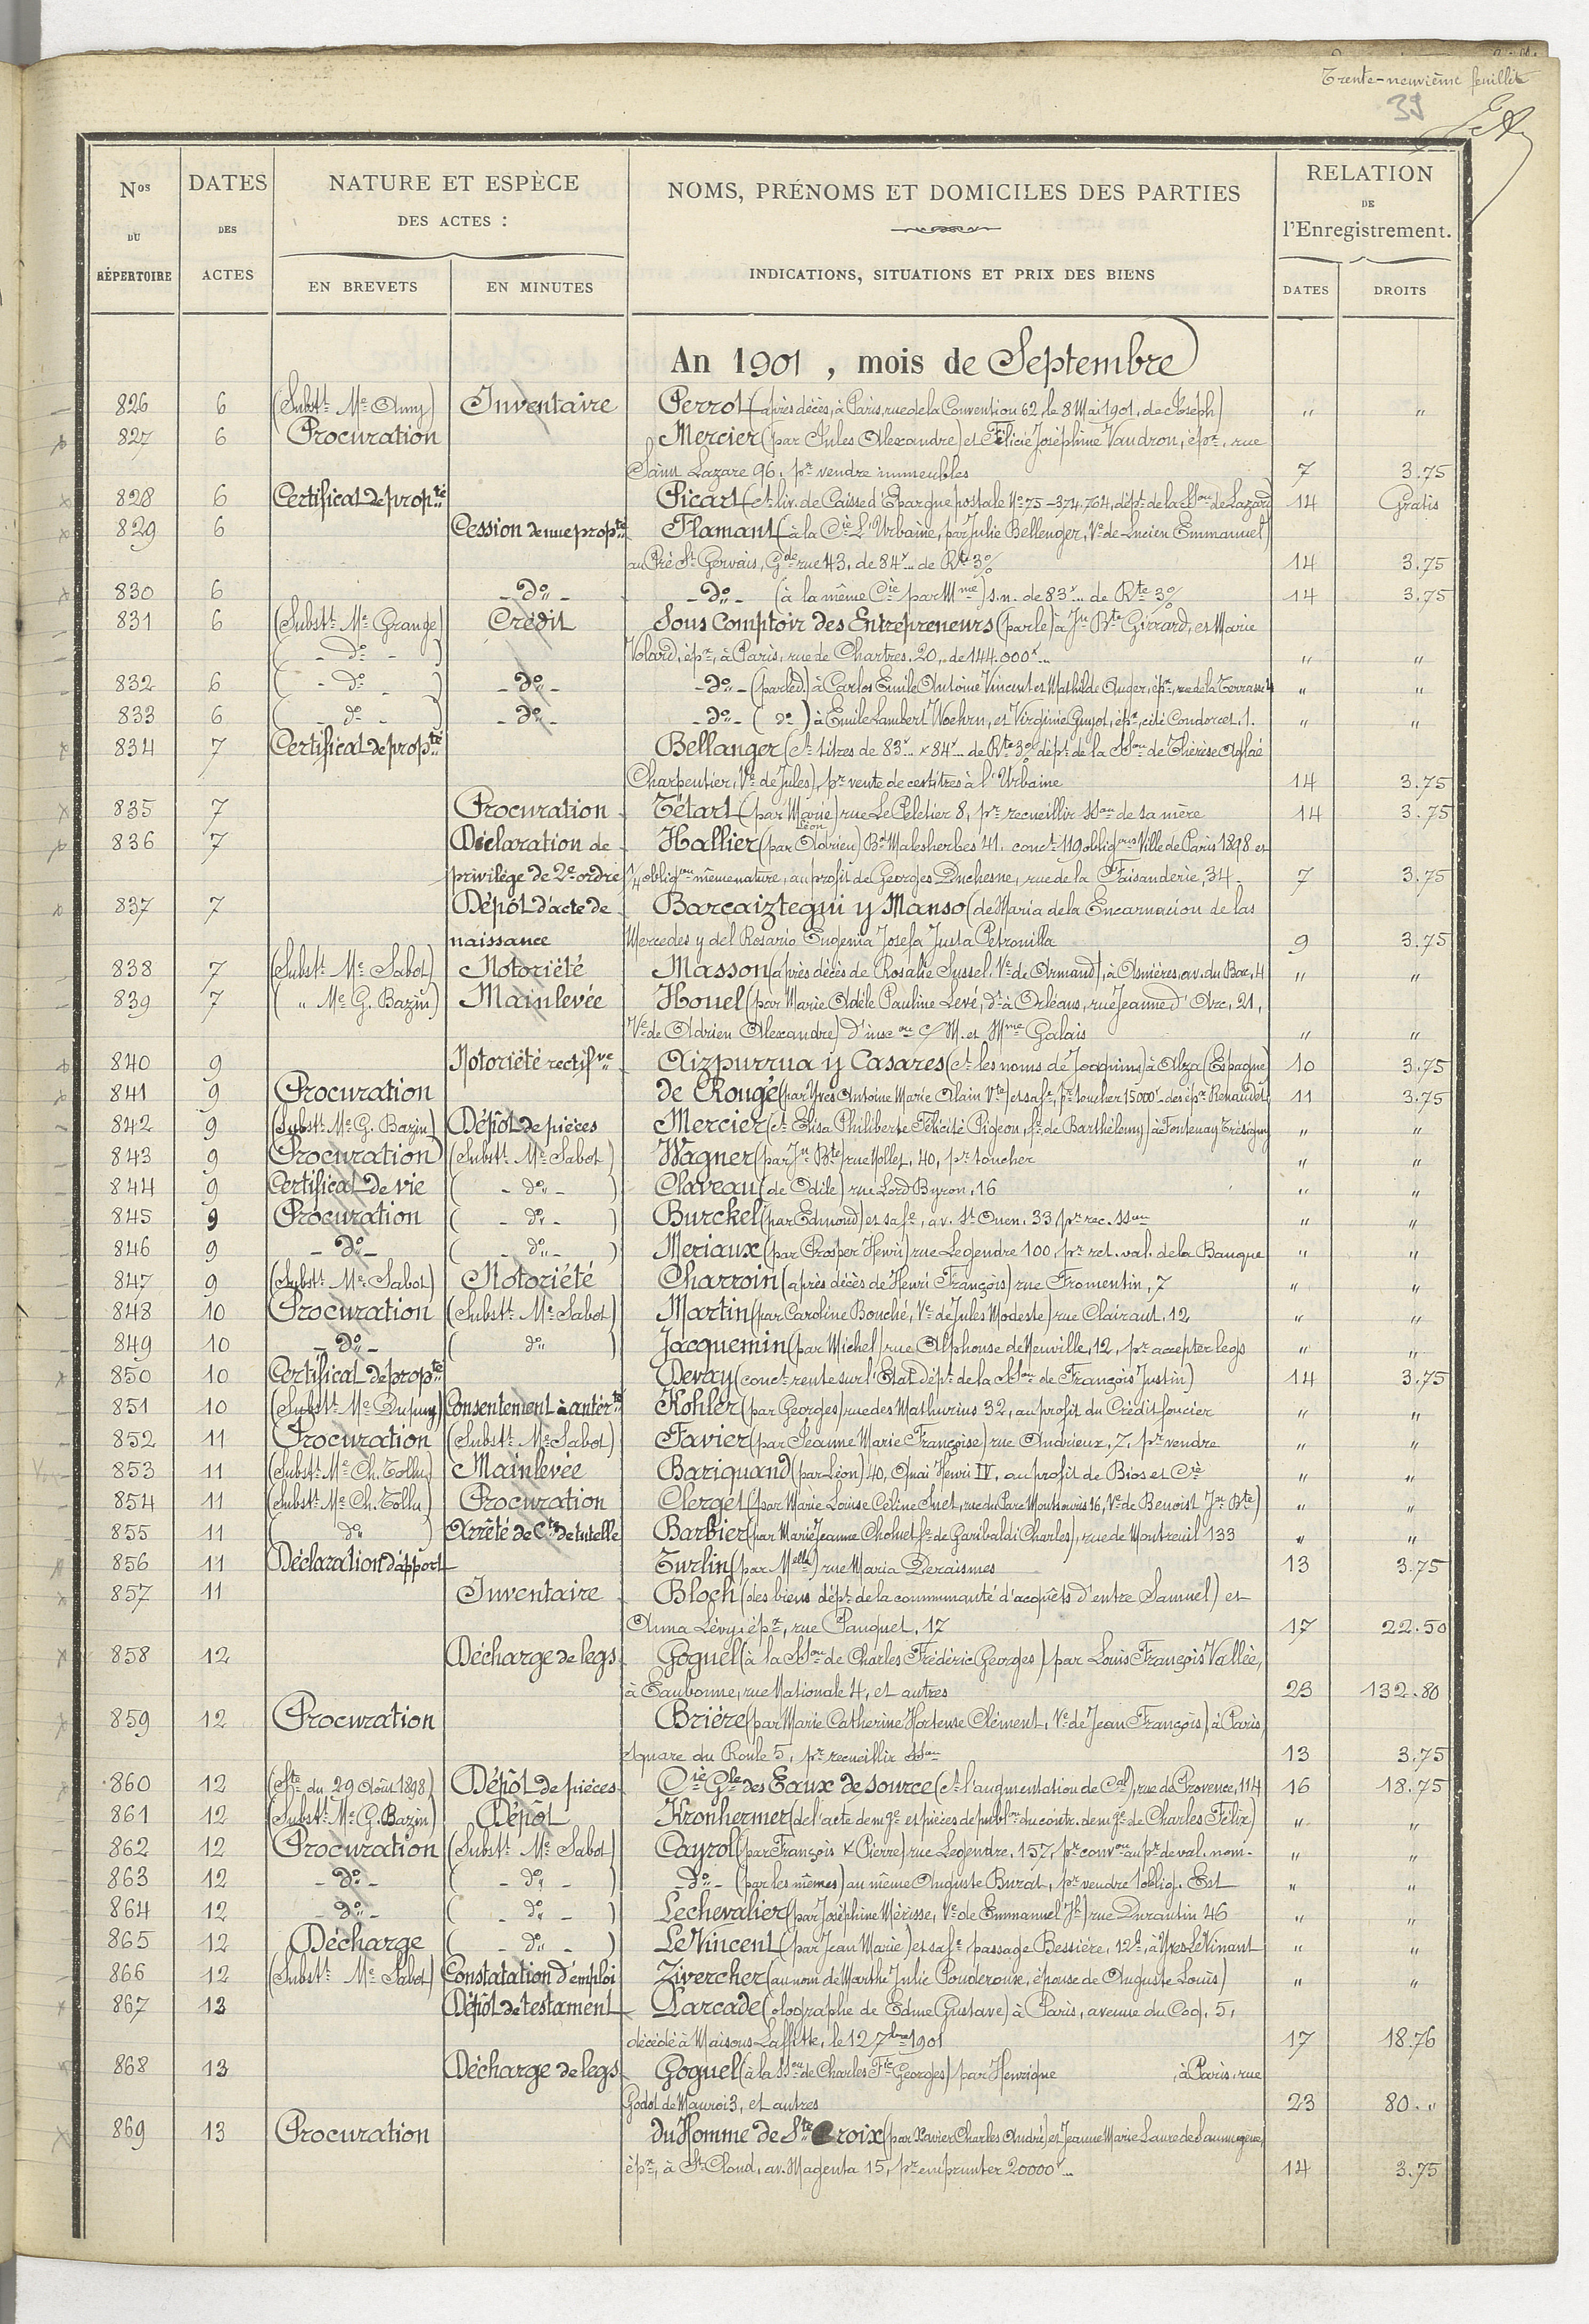 Trente-neuvième feuillet
39
Nos DU RÉPERTOIRE
DATES DES ACTES
NATURE ET ESPÈCE DES ACTES :
EN BREVETS
EN MINUTES
NOMS, PRÉNOMS ET DOMICILES DES PARTIES
INDICATIONS, SITUATIONS ET PRIX DES BIENS
RELATION DE l'Enregistrement.
DATES
DROITS
An 1901, mois de Septembre
826 6 (Substt Me Aumy) Inventaire Perrot (après décès, à Paris, rue de la Convention 62, le 8 Mai 1901, de Joseph) " "
827 6 Procuration Mercier (par Jules Alexandre) et Félicie Joséphine Vaudron, épx, rue
Saint Lazare 96, pr vendre immeubles 7 3.75
828 6 Certificat de propté Picart (ct liv. de Caisse d'Epargne postale No 75-374.764, dépt de la SSon de Lazare) 14 Gratis
829 6 Cession de nue propté Flamant (à la Cie L'Urbaine, par Julie Bellenger, Ve de Lucien Emmanuel)
au Pré St Gervais, Gde rue 43, de 84f... de Rte 3% 14 3.75
830 6 - do - - do - (à la même Cie par Mme) s.n. de 83f... de Rte 3% 14 3.75
831 6 (Substt Me Grange) Crédit Sous Comptoir des Entrepreneurs (par le) à Jn Bte Girard, et Marie
( - do - ) Volard, épx, à Paris, rue de Chartres, 20, de 144.000f... " "
832 6 ( - do - ) - do - - do - (par led.) à Carlos Emile Antoine Vincent et Mathilde Auger, épx, rue de la Terrasse 4 " "
833 6 ( - do - ) - do - - do - ( do ) à Emile Lambert Woehrn, et Virginie Guyot, épx, cité Condorcet, 1. " "
834 7 Certificat de propté Bellanger (ct titres de 83f... & 84f... de Rte 3% dépt de la SSon de Thérèse Aglaé
Charpentier, Ve de Jules), pr vente de ces titres à l'Urbaine 14 3.75
835 7 Procuration Tétart (par Marie) rue Le Peletier 8, pr recueillir SSon de sa mère 14 3.75
836 7 Déclaration de Hallier (par Léon Adrien) Bd Malesherbes 41, conct 119 obligons Ville de Paris 1898 et
privilège de 2e ordre 1/4 obligon même nature, au profit de Georges Duchesne, rue de la Faisanderie, 34. 7 3.75
837 7 Dépôt d'acte de Barcaiztegui y Manso (de Maria de la Encarnacion de las
naissance Mercedes y del Rosario Eugenia Josefa Justa Petronilla 9 3.75
838 7 (Substt Me Sabot) Notoriété Masson (après décès de Rosalie Sussel, Ve de Armand), à Asnières, av. du Bac, 4 " "
839 7 ( " Me G. Bazin) Mainlevée Houel (par Marie Adèle Pauline Levé, dt à Orléans, rue Jeanne d'Arc, 21,
Ve de Adrien Alexandre) d'inscon c/ M. et Mme Galais " "
840 9 Notoriété rectifve Aizpurrua y Casares (ct les noms de Joaquim) à Alza (Espagne) 10 3.75
841 9 Procuration de Rougé (par Yves Antoine Marie Alain Vte) et sa fe, pr toucher 15000f des épx Renaudet 11 3.75
842 9 (Substt Me G. Bazin) Dépôt de pièces Mercier (ct Elisa Philiberte Félicité Pigeon, fe de Barthélemy) à Fontenay Trésigny " "
843 9 Procuration (Substt Me Sabot) Wagner (par Jn Bte) rue Nollet, 40, pr toucher " "
844 9 Certificat de vie ( - do - ) Claveau (de Odile) rue Lord Byron, 16 " "
845 9 Procuration ( - do - ) Burckel (par Edmond) et sa fe, av. St Ouen, 33 pr rec. SSon " "
846 9 - do - ( - do - ) Meriaux (par Prosper Henri) rue Legendre 100, pr ret. val. de la Banque " "
847 9 (Substt Me Sabot) Notoriété Charroin (après décès de Henri François) rue Fromentin, 7 " "
848 10 Procuration (Substt Me Sabot) Martin (par Caroline Bouché, Ve de Jules Modeste) rue Clairaut, 12 " "
849 10 - do - ( do ) Jacquemin (par Michel) rue Alphonse de Neuville, 12, pr accepter legs " "
850 10 Certificat de propté Devay (conct rente sur l'Etat dépt de la SSon de François Justin) 14 3.75
851 10 (Substt Me Dupuy) Consentement à antérté Kohler (par Georges) rue des Mathurins 32, au profit du Crédit foncier " "
852 11 Procuration (Substt Me Sabot) Favier (par Jeanne Marie Françoise) rue Andrieux, 7, pr vendre " "
853 11 (Substt Me Ch. Tollu) Mainlevée Bariquand (par Léon) 40, Quai Henri IV, au profit de Bios et Cie " "
854 11 (Substt Me Ch. Tollu) Procuration Clerget (par Marie Louise Céline Suet, rue du Parc Montsouris 16, Ve de Benoist Jn Bte) " "
855 11 ( do ) Arrêté de Cte de tutelle Barbier (par Marie Jeanne Choluet fe de Garibaldi Charles), rue de Montreuil 133 " "
856 11 Déclaration d'apport Turlin (par Melle) rue Maria Deraismes 13 3.75
857 11 Inventaire Bloch (des biens dépt de la communauté d'acquêts d'entre Samuel) et
Anna Lévy, épx, rue Pauquet, 17 17 22.50
858 12 Décharge de legs Goguel (à la SSon de Charles Frédéric Georges) par Louis François Vallée,
à Eaubonne, rue Nationale 4, et autres 23 132.80
859 12 Procuration Brière (par Marie Catherine Hortense Clément, Ve de Jean François) à Paris,
square du Roule 5, pr recueillir SSon 13 3.75
860 12 (Sté du 29 Août 1898) Dépôt de pièces Cie Gle des Eaux de source (ct l'augmentation de Cal), rue de Provence, 114 16 18.75
861 12 (Substt Me G. Bazin) Dépôt Kronhermer (de l'acte de mge et pièces de publon du contr. de mge de Charles Félix) " "
862 12 Procuration (Substt Me Sabot) Cayrol (par François & Pierre) rue Legendre, 157, pr convon au pr de val. nom. " "
863 12 - do - ( - do - ) - do - (par les mêmes) au même Auguste Burat, pr vendre 1 oblig. Est " "
864 12 - do - ( - do - ) Lechevalier (par Joséphine Mérisse, Ve de Emmanuel Jh) rue Durantin 46 " "
865 12 Décharge ( - do - ) Le Vincent (par Jean Marie) et sa fe, passage Bessière, 12b, à Yves Le Vinant " "
866 12 (Substt Me Sabot) Constatation d'emploi Zivercher (au nom de Marthe Julie Pouderoux, épouse de Auguste Louis) " "
867 13 Dépôt de testament Larcade (olographe de Edme Gustave) à Paris, avenue du Coq, 5,
décédé à Maisons Laffitte, le 12 7bre 1901 17 18.76
868 13 Décharge de legs Goguel (à la SSon de Charles Fic Georges) par Henrique à Paris, rue
Godot de Mauroi 3, et autres 23 80."
869 13 Procuration du Homme de Ste Croix (par Xavier Charles André) et Jeanne Marie Laure de
épx, à St Cloud, av. Magenta 15, pr emprunter 20000f... 14 3.75